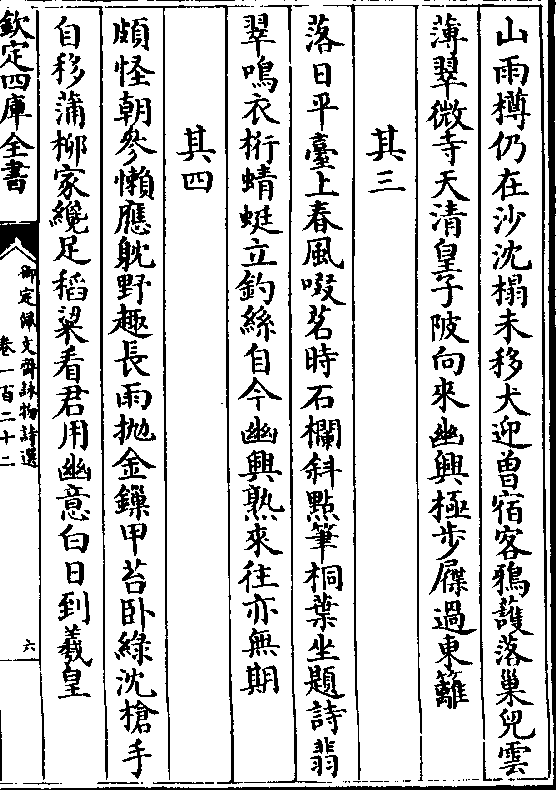 山雨樽仍在沙沈榻未移犬迎曽宿客鴉䕶落巢兒雲
薄翠微寺天清皇子陂向來幽興極步屧過東籬
其三
落日平臺上春風啜茗時石欄斜點筆桐葉坐題詩翡
翠鳴衣桁蜻蜓立釣絲自今幽興熟來往亦無期
其四
頗怪朝參懶應躭野趣長雨抛金鏁甲苔卧綠沈槍手
自移蒲柳家纔足稻粱看君用幽意白日到羲皇
欽定四庫全書
御定佩文齋詠物詩選
卷一百二十二
六